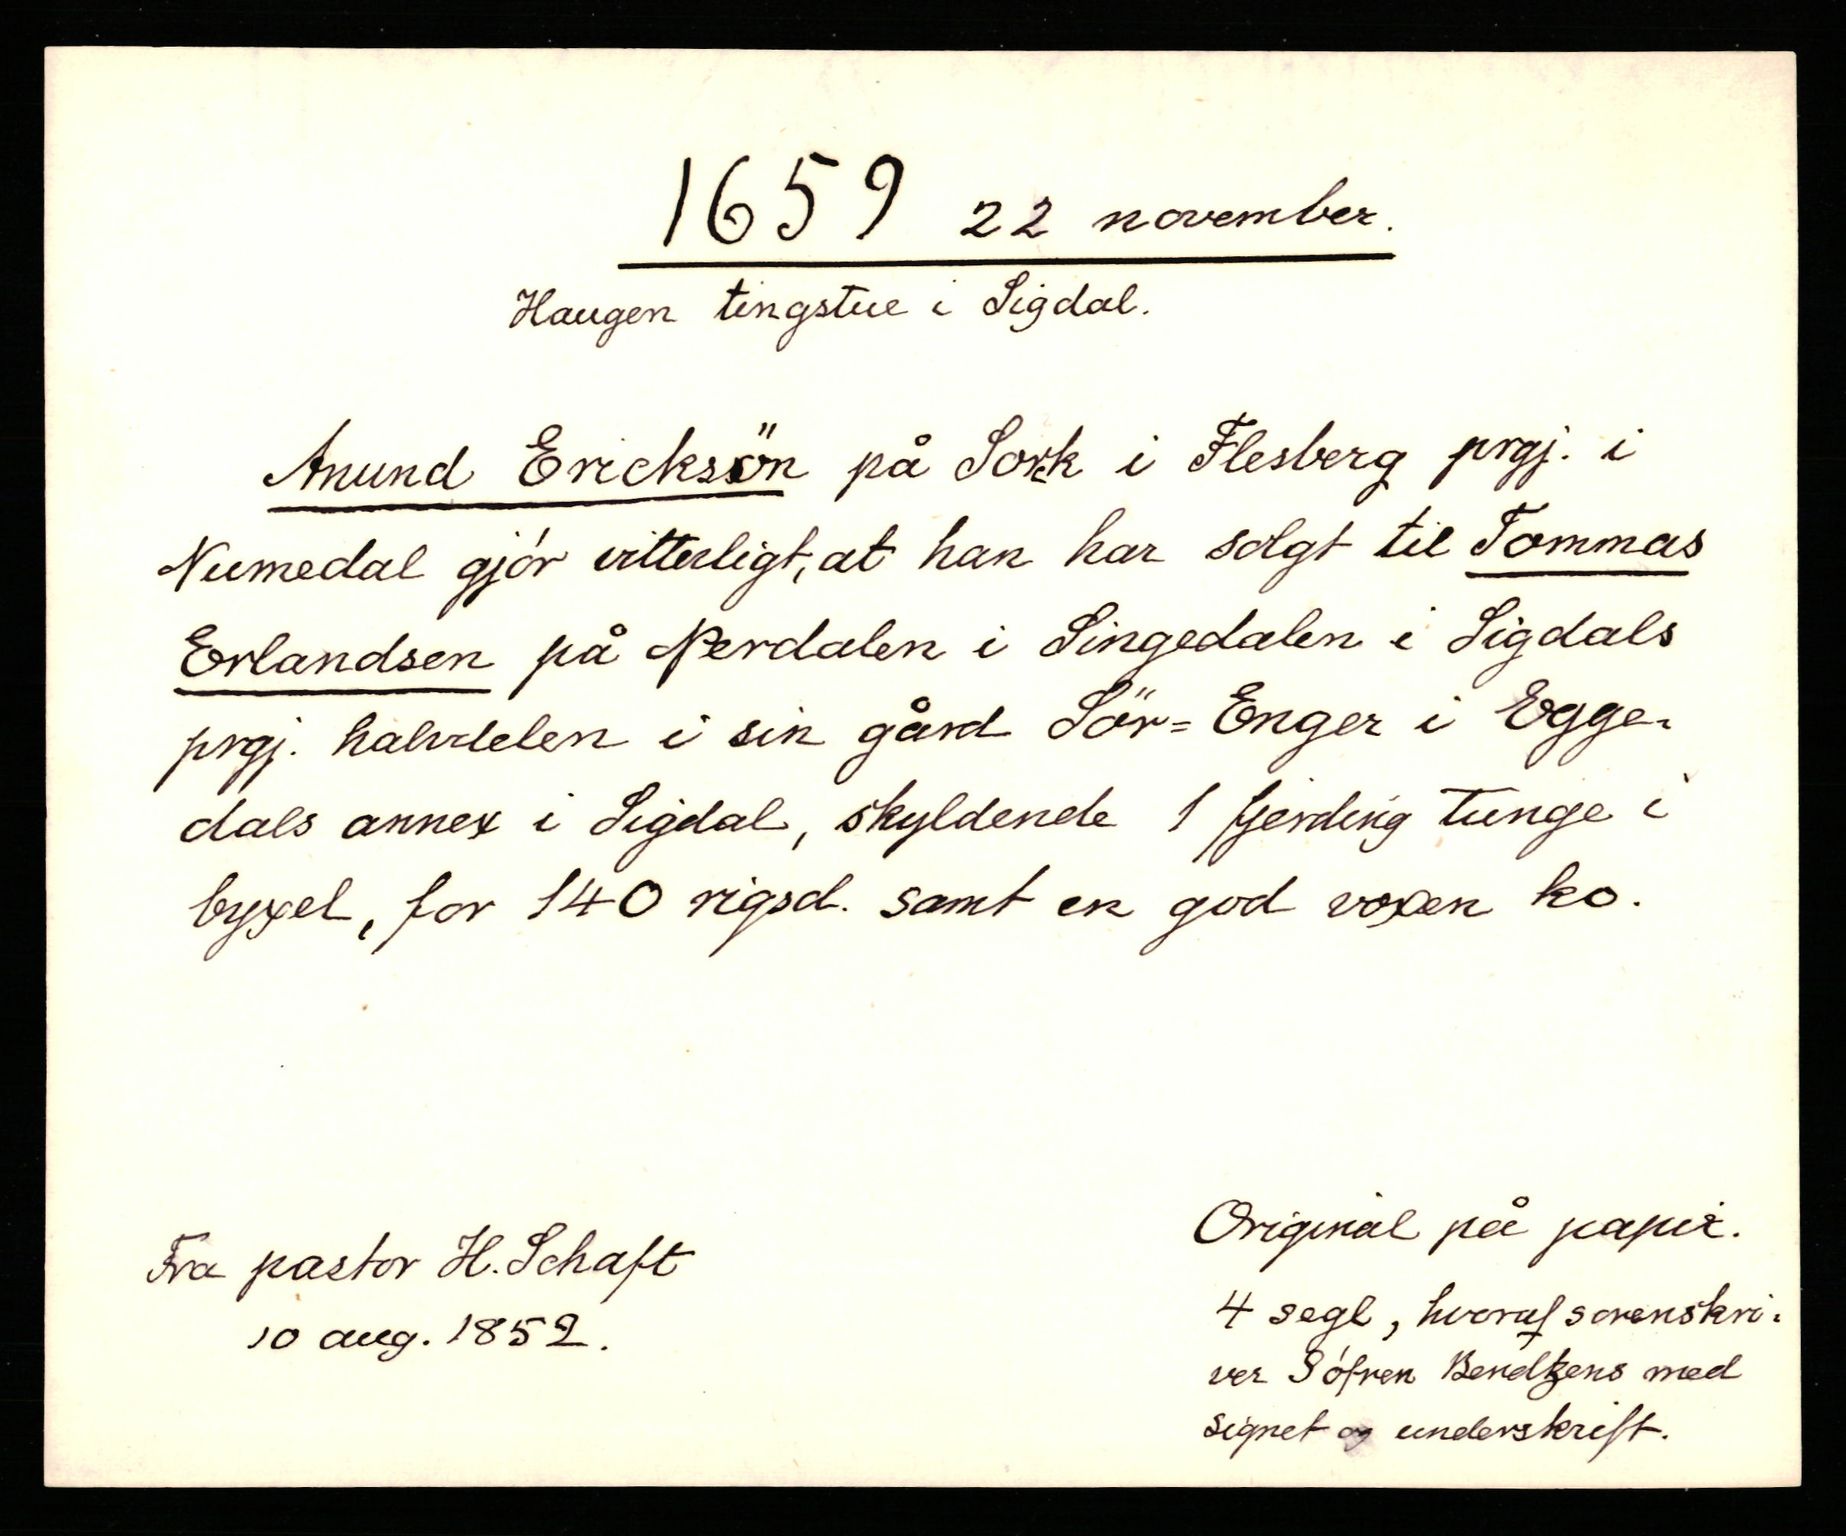 1659 22 november.
Haugen tingstue i Sigdal.
Anund Ericksön på Sork i Flesberg prgj. i
Numedal gjór vitterligt, at han har solgt til Tommas
Erlandsen på Nerdalen i Singedalen i Sigdals
prgj. halvdelen i sin gård Sör=Enger i Egge-
dals annex i Sigdal, skyldende 1 fjerding tunge i
byxel, for 140 rigsd. samt en god voxen ko.
Fra pastor H. Schaft
10 aug. 1852.
Original på papir.
4 segl, hvoraf sorenskri-
ver Sófren Bendtzens med
signet og underskrift.